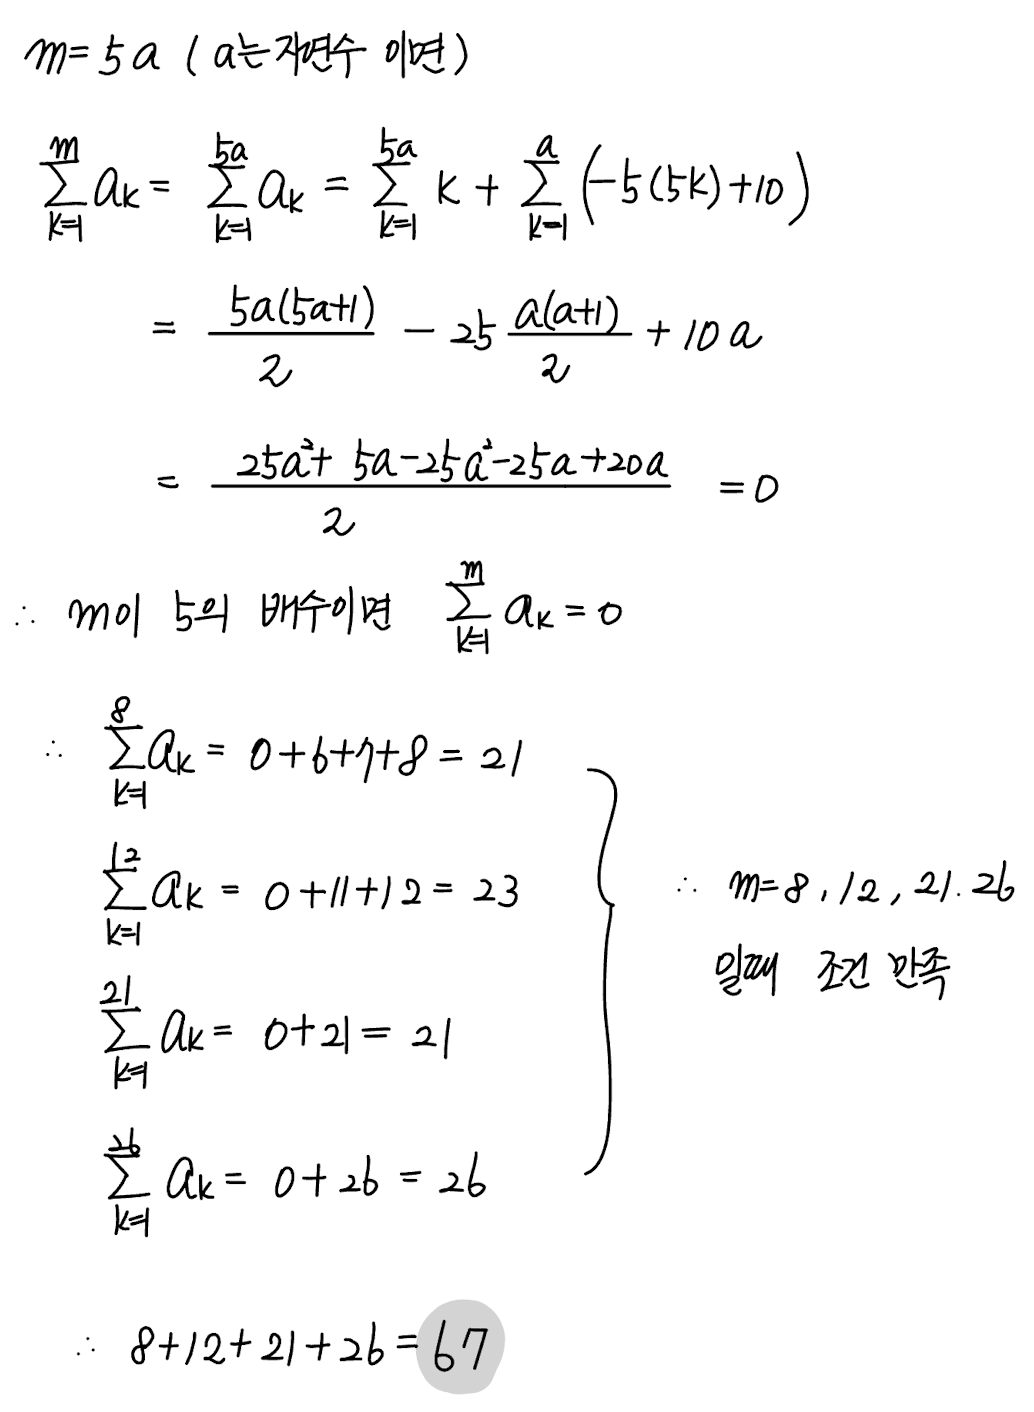 m=5a (a는 자연수 이면)
\sum_{k=1}^{m} a_k = \sum_{k=1}^{5a} a_k = \sum_{k=1}^{5a} k + \sum_{k=1}^{a} (-5(5k)+10)
= \frac{5a(5a+1)}{2} - 25 \frac{a(a+1)}{2} + 10a
= \frac{25a^2+5a-25a^2-25a+20a}{2} = 0
∴ m이 5의 배수이면 \sum_{k=1}^{m} a_k = 0
∴ \sum_{k=1}^{8} a_k = 0+6+7+8 = 21
\sum_{k=1}^{12} a_k = 0+11+12 = 23
∴ m=8, 12, 21. 26
일때 조건 만족
\sum_{k=1}^{21} a_k = 0+21 = 21
\sum_{k=1}^{26} a_k = 0+26 = 26
∴ 8+12+21+26=67